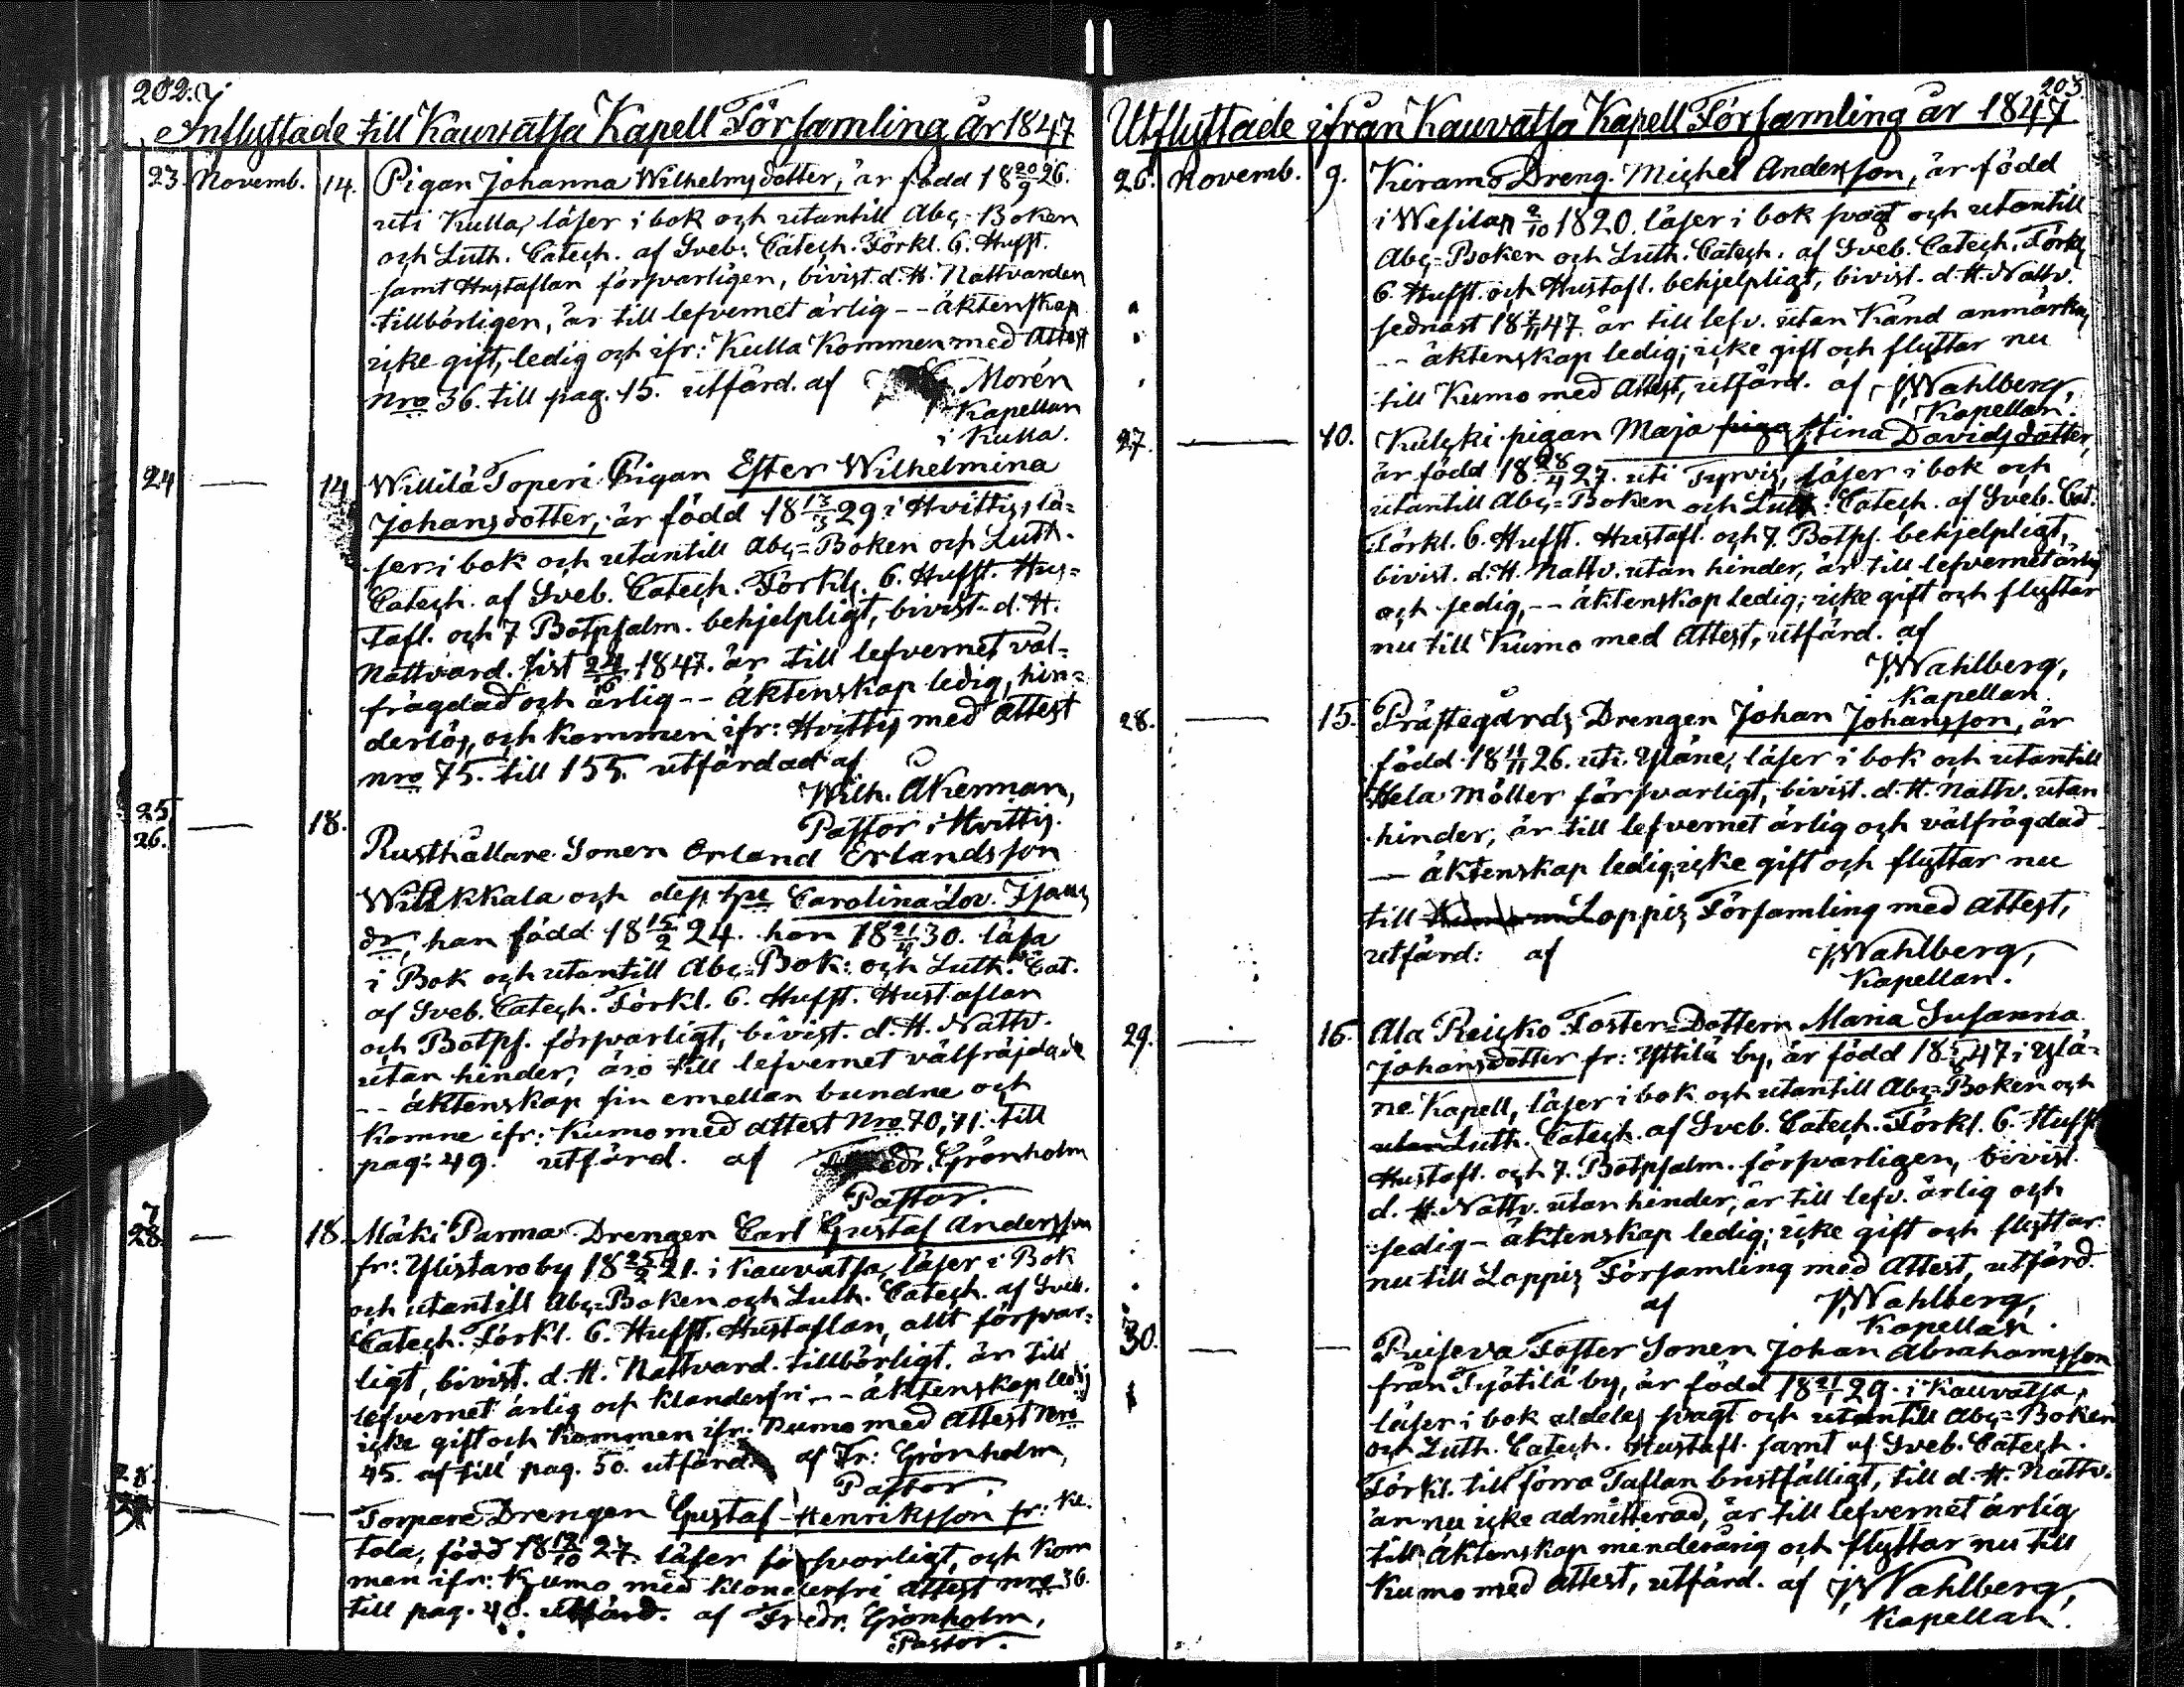 202.
Inflyttade till Kauvatsa Kapell Församling år 1847
23. Novemb. 14. Pigan Johanna Wilhelmsdotter, är född 18 20/9 26.
uti Kulla, läser i bok och utantill Abc-Boken
och Luth. Catech. af Sveb. Catech. Förkl. 6. Hufst.
samt Hustaflan försvarligen, bivist. d. H. Nattvarden
tillbörligen, är till lefvernet ärlig -- äktenskap
icke gift, ledig och ifr: Kulla Kommen med Attest
Nro 36. till pag. 15. utfärd. af Morén
Kapellan
i Kulla.
24 — 14 Willilä Toperi Pigan Ester Wilhelmina
Johansdotter, är född 18 13/3 29 i Hvittis, lä-
ser i bok och utantill Abc-Boken och Luth.
Catech. af Sveb. Catech. Förkl. 6. Hufst. Hus-
tafl. och 7 Botpsalm. behjelpligt, bivist. d. H.
Nattvard. sist 24/10 1847. är till lefvernet väl-
frägdad och ärlig -- äktenskap ledig, hin-
derlös, och Kommen ifr: Hvittis med Attest
nro 75. till 155. utfärdad af
Wilh. Åkerman,
Pastor i Hvittis.
25
26. — 18. Rusthållare Sonen Erland Erlandsson
Willkkala och dess hu Carolina Lov. Isaks
dr, han född 18 15/2 24. hon 18 21/4 30. läsa
i Bok och utantill Abc-Bok: och Luth. Cat.
af Sveb. Catech. Förkl. 6. Hufst. Hustaflan
och Botps. försvarligt, bivist. d. H. Nattv.
utan hinder, äro till lefvernet välfräjdade
-- äktenskap sin emellan bundne och
Komne ifr: Kumo med attest Nro 70, 71. till
pag: 49. utfärd. af Fredr. Grönholm
Pastor.
7
28. — 18. Mäki Parma Drengen Carl Gustaf Andersson
fr: Ylistaro by 18 25/2 21. i Kauvatsa, läser i Bok
och utantill Abc-Boken och Luth. Catech. af Sveb.
Catech. Förkl. 6. Hufst. Hustaflan, allt försvar-
ligt, bivist. d. H. Nattvard. tillbörligt, är till
lefvernet ärlig och klanderfri -- äktenskap ledig
icke gift och Kommen ifr. Kumo med Attest Nro
45. af till pag. 50. utfärd. af Fr: Grönholm,
Pastor.
28.
— — Torpare Drengen Gustaf Henriksson fr: Ki-
tola, född 18 12/10 27. läser försvarligt, och Kom
men ifr: Kumo med klanderfri attest nro 36.
till pag. 48. utfärd. af Fredr. Grönholm,
Pastor.
203.
Utflyttade ifrån Kauvatsa Kapell Församling år 1847
26. Novemb. 9. Kiramo Dreng. Michel Andersson, är född
i Wesilax 2/10 1820. läser i bok svagt och utantill
Abc-Boken och Luth. Catech. af Sveb. Catech. Förkl.
6. Hufst. och Hustafl. behjelpligt, bivist. d. H. Nattv.
sednast 18 7/11 47. är till lefv. utan Känd anmärkn
-- äktenskap ledig; icke gift och flyttar nu
till Kumo med Attest, utfärd. af J. Wahlberg,
Kapellan.
27. — 10. Kulcki pigan Maja piga Stina Davidsdotter,
är född 18 28/4 27. uti Tyrvis, läser i bok och
utantill Abc-Boken och Luth. Catech. af Sveb. Cat.
Förkl. 6. Hufst. Hustafl. och 7. Botps. behjelpligt,
bivist. d. H. Nattv. utan hinder, är till lefvernet ärlig
och sedig, -- äktenskap ledig; icke gift och flyttar
nu till Kumo med Attest, utfärd. af
J. Wahlberg,
Kapellan.
28. — 15. Prästegårds Drengen Johan Johansson, är
född 18 11/11 26. uti Yläne, läser i bok och utantill
Hela Möller försvarligt, bivist. d. H. Nattv. utan
hinder, är till lefvernet ärlig och välfrägdad
— äktenskap ledig; icke gift och flyttar nu
till Loppis Församling med attest,
utfärd: af J. Wahlberg,
Kapellan.
29. — 16. Ala Reicko Foster-Dottern Maria Susanna
Johansdotter fr: Yttilä by, är född 18 47 i Ylä-
ne Kapell, läser i bok och utantill Abc-Boken och
utan Luth. Catech. af Sveb. Catech. Förkl. 6. Hufst
Hustafl. och 7. Botpsalm. försvarligen, bivist.
d. H. Nattv. utan hinder, är till lefv. ärlig och
sedig - äktenskap ledig; icke gift och flyttar
nu till Loppis Församling med Attest, utfärd.
af J. Wahlberg,
Kapellan.
30. — — Puiseva Foster Sonen Johan Abrahamsson
från Työtilä by, är född 18 21/1 29. i Kauvatsa,
läser i bok aldeles svagt och utantill Abc-Boken
och Luth. Catech. Hustafl. samt af Sveb. Catech.
Förkl. till förra Taflan bristfälligt, till d. H. Nattv.
än nu icke admitterad, är till lefvernet ärlig
till äktenskap minderårig och flyttar nu till
Kumo med Attest, utfärd. af J. Wahlberg,
Kapellan.